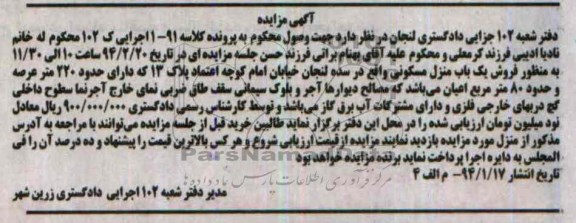 آگهی مزایده
دفتر شعبه ۱۰۲ جزایی دادگستری لنجان در نظر دارد جهت وصول محکوم به پرونده کلاسه ۹۱-۱اجرایی ک ۱۰۲ محکوم له خانم
نادیا ادیبی فرزند کرمعلی و محکوم علیه آقای بهنام براتی فرزند حسن جلسه مزایده ای در تاریخ ۹۴/۲/۲۰ ساعت ۱۰ الی ۱۱/۳۰
به منظور فروش یک باب منزل مسکونی واقع در سده لنجان خیابان امام کوچه اعتماد پلاک ۱۳ که دارای حدود ۲۲۰ متر عرصه
و حدود ۸۰ متر مربع اعیان می‌باشد که مصالح دیوارها آجر و بلوک سیمانی سقف طاق ضربی نمای خارج آجرنما سطوح داخلی
گچ دربهای خارجی فلزی و دارای مشترکات آب برق گاز می‌باشد و توسط کارشناس رسمی دادگستری ۹۰۰/۰۰۰/۰۰۰ ریال معادل
نود میلیون تومان ارزیابی شده را در محل این دفتر برگزار نماید طالبین خرید قبل از جلسه مزایده می‌توانند با مراجعه به آدرس
مذکور از منزل مورد مزایده بازدید نمایند مزایده از قیمت ارزیابی شروع و هر کس بالاترین قیمت را پیشنهاد و ده درصد آن را فی
المجلس به دایره اجرا پرداخت نماید برنده مزایده خواهد بود
تاریخ انتشار ۹۴/۱/۱۷- م الف ۴
مدیر دفتر شعبه ۱۰۲ اجرایی دادگستری زرین شهر